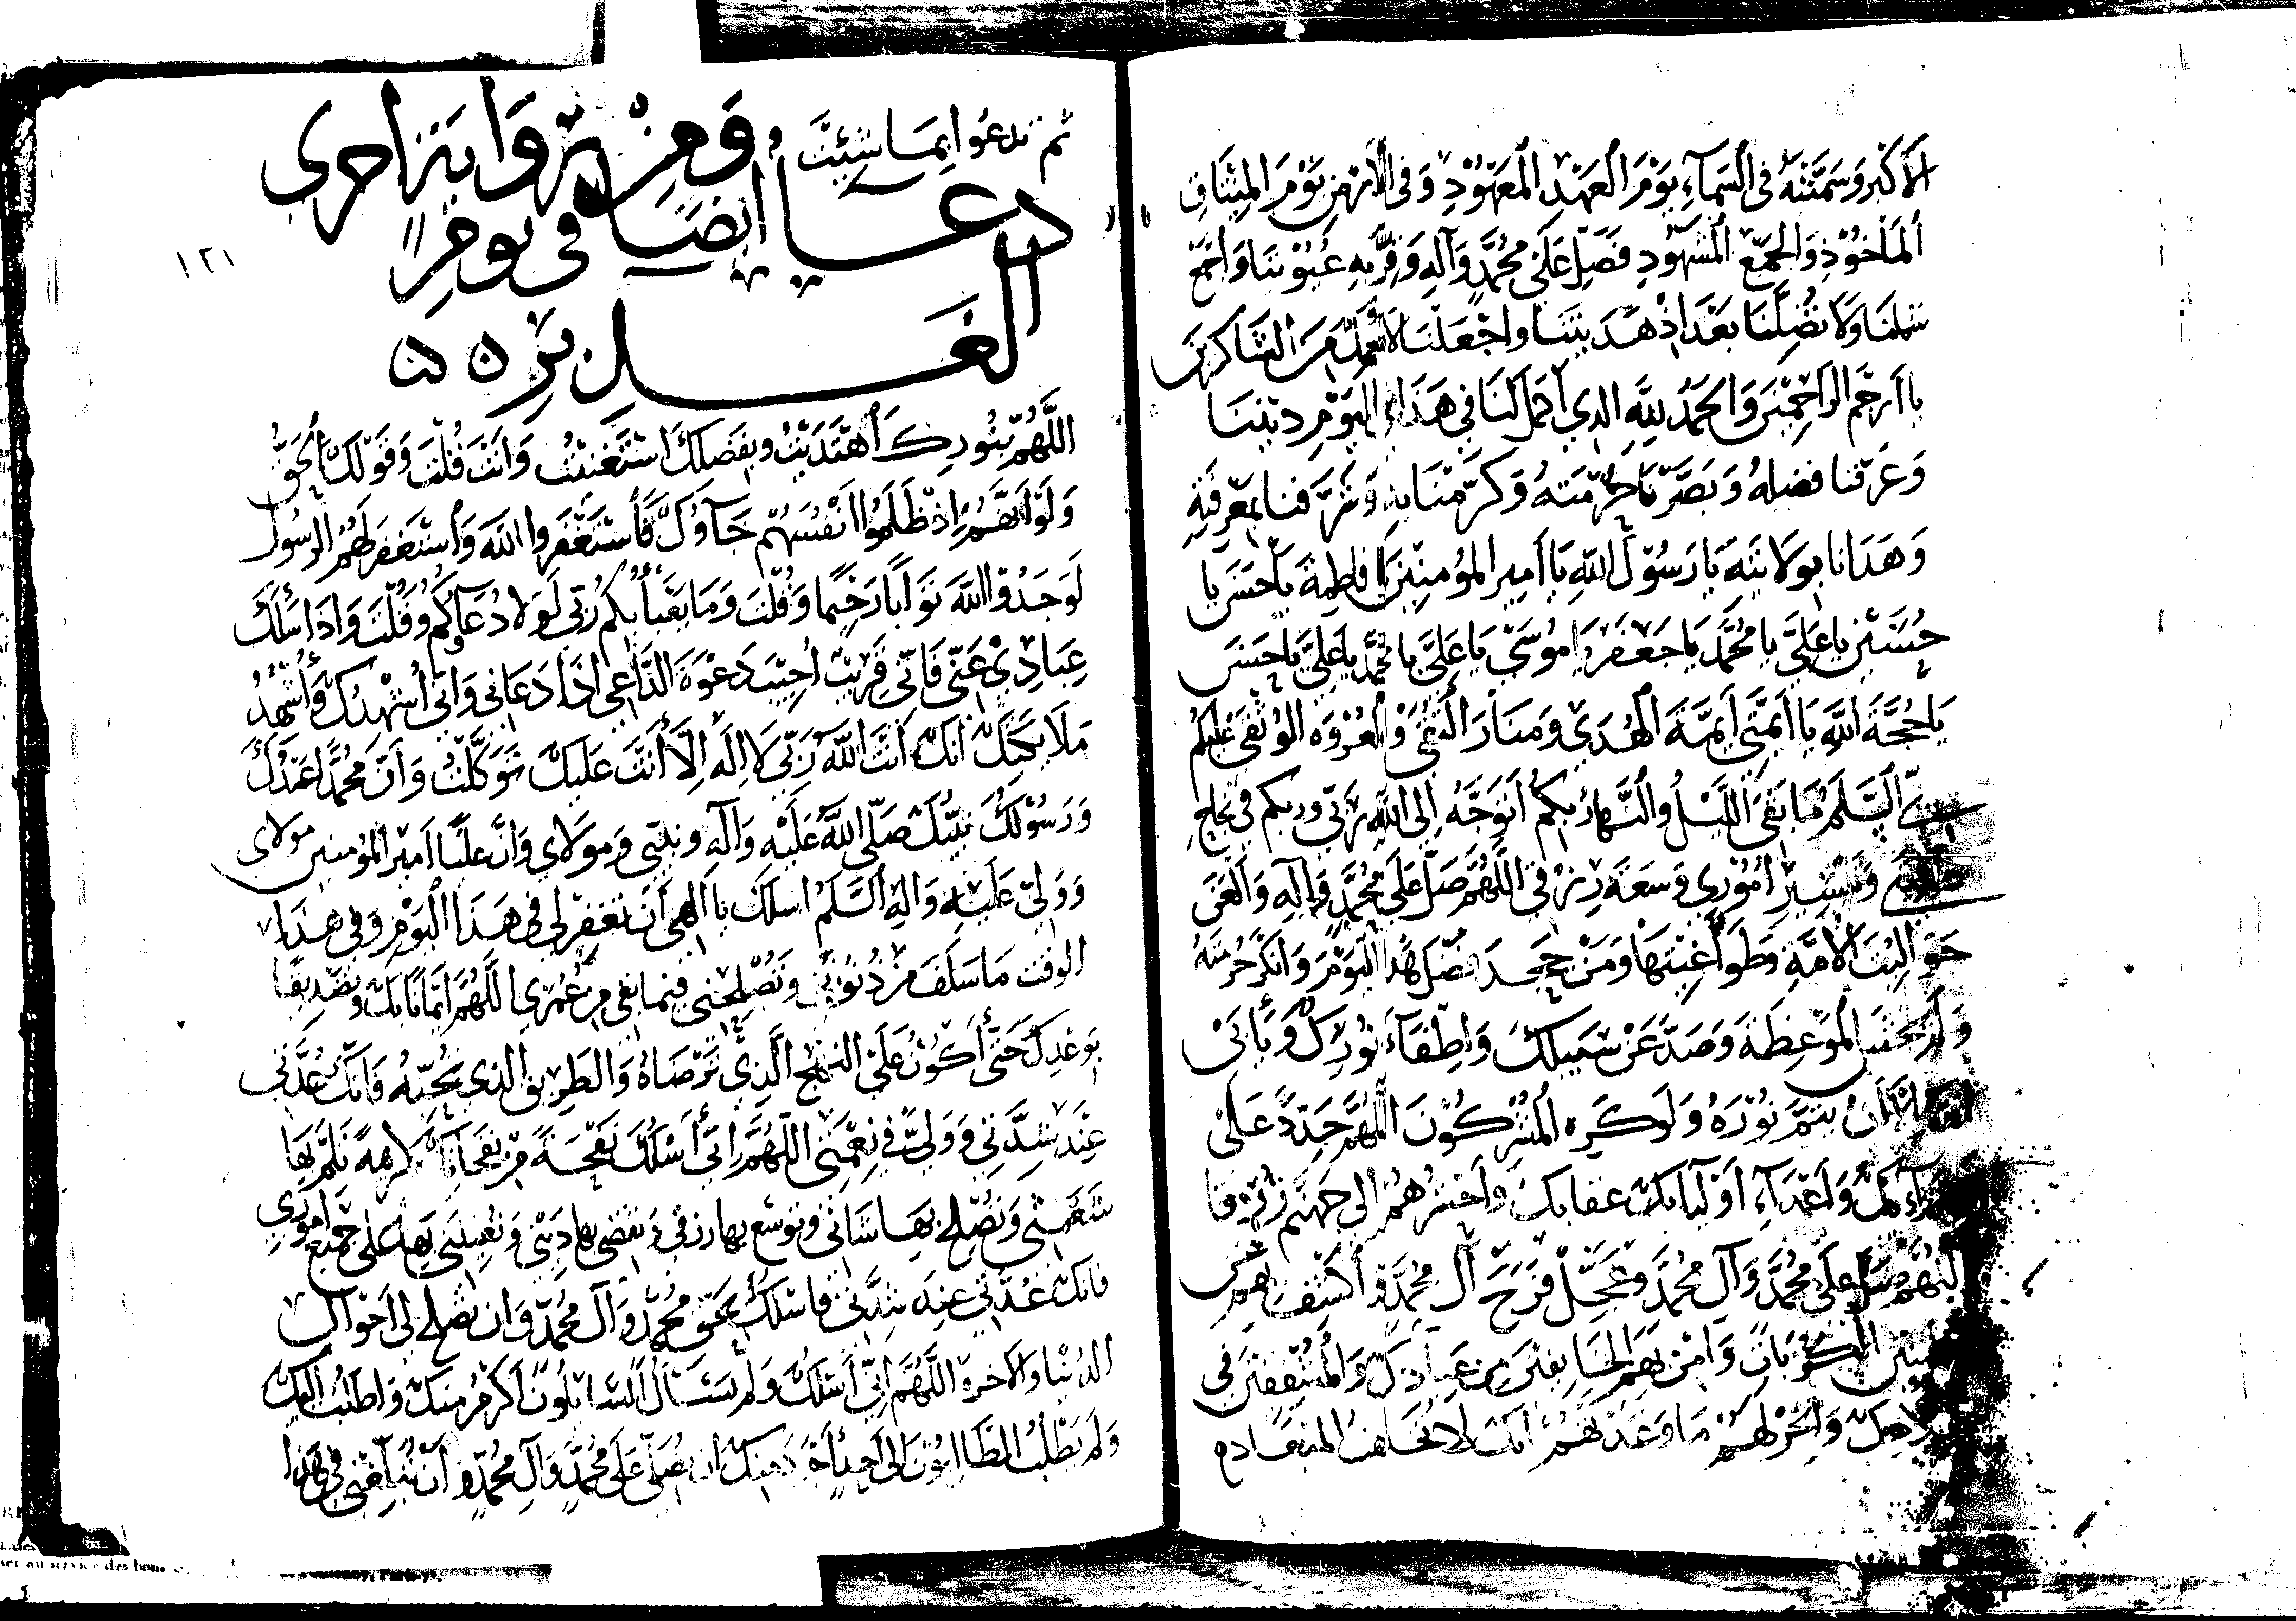 الاكبر وسمّيته في السماء يوم العهد المعهود وفي الارض يوم الميثاق
المأخوذ والجمع المشهود فصلّ على محمد وآله وقرّ به عيوننا واجمع
شملنا ولا تضلّنا بعد اذ هديتنا واجعلنا لانعمك من الشاكرين
يا ارحم الراحمين والحمد لله الذي اكمل لنا في هذا اليوم ديننا
وعرّفنا فضله وبصّرنا حرمته وكرّمنا به وشرّفنا بمعرفته
وهدانا بولايته يا رسول الله يا امير المؤمنين يا فاطمة يا حسن يا
حسين يا علي يا محمد يا جعفر يا موسى يا علي يا محمد يا علي يا حسن
يا حجة الله يا ائمتي ائمة الهدى ومنار التقى والعروة الوثقى عليكم
السلم ما بقي الليل والنهار بكم اتوجه الى الله ربي وربكم في نجاح
وتيسير اموري وسعة رزقي اللهم صلّ على محمد وآله والعن
الامة وطواغيتها ومن جحد فضل هذا اليوم وانكر حرمته
الموعظة وصدّ عن سبيلك واطفاء نورك ويأبى
الله الا ان يتمّ نوره ولو كره المشركون اللهم جدّد على
واعداء اوليائك عقابك واحشرهم الى جهنم زرقا
اللهم صلّ على محمد وآل محمد وعجّل فرج آل محمد واكشف بهم عن
الكربات وآمن بهم الخايفين من عبادك والمثقفين في
وانجز لهم ما وعدتهم انك لا تخلف الميعاد
ثم تدعوا بما شئت وفي رواية اخرى
دعا ايضا في يوم
الغدير
١٢١
اللهم بنورك اهتديت وبفضلك استغنيت وانت قلت وقولك الحق
ولو انهم اذ ظلموا انفسهم جاؤك فاستغفروا الله واستغفر لهم الرسول
لوجدوا الله توابا رحيما وقلت وما يعبأ بكم ربي لولا دعاؤكم وقلت واذا سألك
عبادي عني فاني قريب اجيب دعوة الداعي اذا دعاني واني اشهدك واشهد
ملايكتك انك انت الله ربي لا اله الا انت عليك توكلت وان محمدا عبدك
ورسولك نبيك صلى الله عليه وآله ونبيي ومولاي وان عليا امير المؤمنين مولاي
ووليي عليه وآله السلم اسلك يا الهي ان تغفر لي في هذا اليوم وفي هذا
الوقت ما سلف من ذنوبي وتصلحني فيما بقي من عمري اللهم ايمانا بك وتصديقا
بوعدك حتى اكون على النهج الذي ترضاه والطريق الذي تحبه فانك عدّتي
عند شدتي ووليي في نعمتي اللهم اني اسلك نفحة من نفحاتك كريمة تلمّ بها
شعثي وتصلح بها شاني وتوسع بها رزقي وتقضي بها ديني وتعينني بها على جميع اموري
فانك عدتي عند شدتي فاسلك بحق محمد وآل محمد وان تصلح لي احوال
الدنيا والآخرة اللهم اني اسلك ولم يسئل السائلون اكرم منك واطلب اليك
ولم يطلب الطالبون الى احد اجود منك ان تصلي على محمد وآل محمد وان تبلغني في هذا